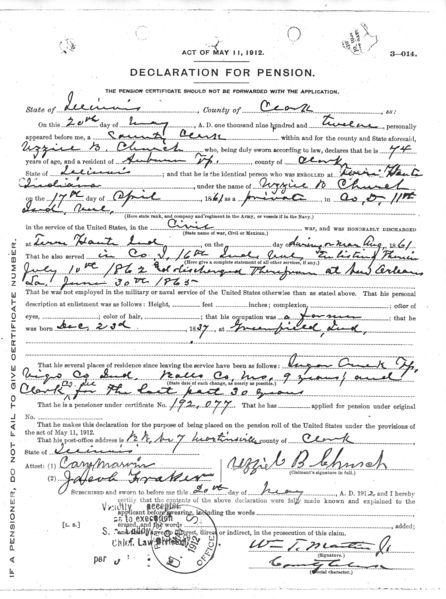 ACT OF MAY 11, 1912.
3—014.
DECLARATION FOR PENSION.
THE PENSION CERTIFICATE SHOULD NOT BE FORWARDED WITH THE APPLICATION.
State of Illinois, County of Clark, ss:
On this 20th day of May, A. D. one thousand nine hundred and twelve, personally
appeared before me, a County Clerk within and for the county and State aforesaid,
Uzziel B. Church, who, being duly sworn according to law, declares that he is 74
years of age, and a resident of Auburn Tp, county of Clark,
State of Illinois; and that he is the identical person who was ENROLLED at Terre Haute
Indiana, under the name of Uzziel B Church,
on the 17th day of April, 1861, as a private, in Co. D, 11th
Ind,
(Here state rank, and company and regiment in the Army, or vessels if in the Navy.)
in the service of the United States, in the Civil war, and was HONORABLY DISCHARGED
(State name of war, Civil or Mexican.)
at Terre Haute Ind, on the day during or near Aug, 1861.
That he also served in Co I, 16th Ind. Enlisting therein
(Here give a complete statement of all other services, if any.)
July 10th 1862 & discharged therefrom at New Orleans
La, June 30th 1865
That he was not employed in the military or naval service of the United States otherwise than as stated above. That his personal
description at enlistment was as follows: Height, feet inches; complexion, ; color of
eyes, ; color of hair, ; that his occupation was a farmer; that he
was born Dec, 23d, 1837, at Greenfield, Ind,
That his several places of residence since leaving the service have been as follows: Sugar Creek Tp,
Vigo Co Ind. Ralls Co, Mo, 9 years; and
(State date of each change, as nearly as possible.)
Clark Co Ill for the last past 30 years
That he is a pensioner under certificate No. 192,077. That he has applied for pension under original
No.
That he makes this declaration for the purpose of being placed on the pension roll of the United States under the provisions of
the act of May 11, 1912.
That his post-office address is R.R. No 7 Martinsville, county of Clark,
State of Illinois
Attest: (1) Cary Marvin
Uzziel B Church
(Claimant's signature in full.)
(2) Jacob Fraker
SUBSCRIBED and sworn to before me this 20th day of May, A. D. 1912, and I hereby
certify that the contents of the above declaration were fully made known and explained to the
applicant before swearing, including the words
erased, and the words , added;
and that I have no interest, direct or indirect, in the prosecution of this claim.
[L. S.]
Validity accepted
as to execution
Chief, Law Division
per
1912
OFFICE
(Signature.)
County Clerk
(Official character.)
IF A PENSIONER, DO NOT FAIL TO GIVE CERTIFICATE NUMBER.